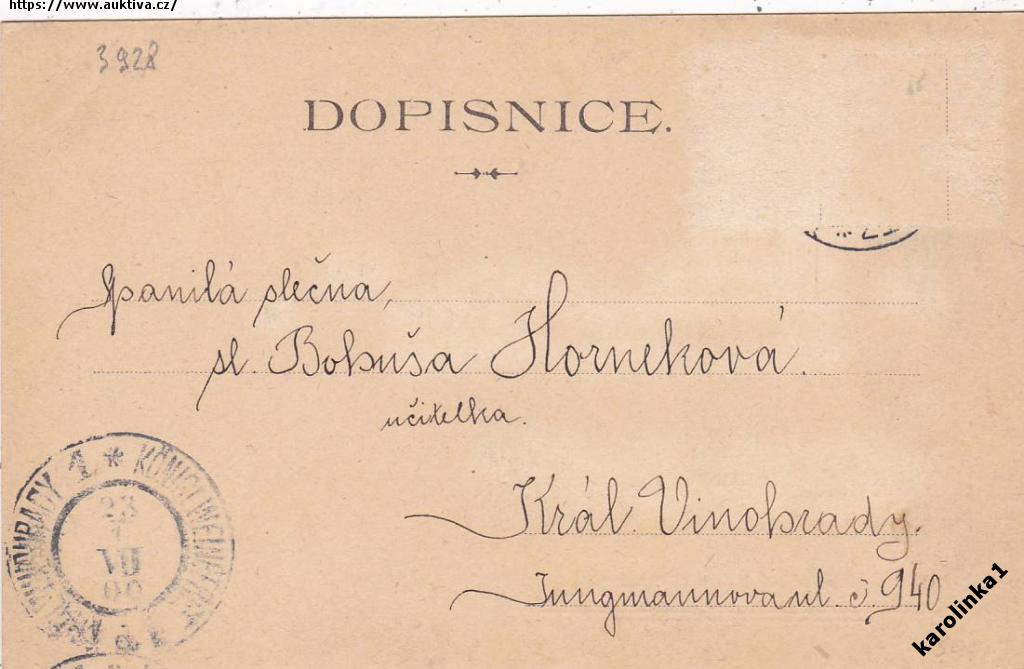 https://www.auktiva.cz/
3928
DOPISNICE.
Spanilá slečna,
sl. Bohuša Horneková.
učitelka.
Král. Vinohrady.
Jungmannova ul. č 940
VINOHRADY 1 * KÖNIGL. WEINBERGE
23
VII
karolinka1